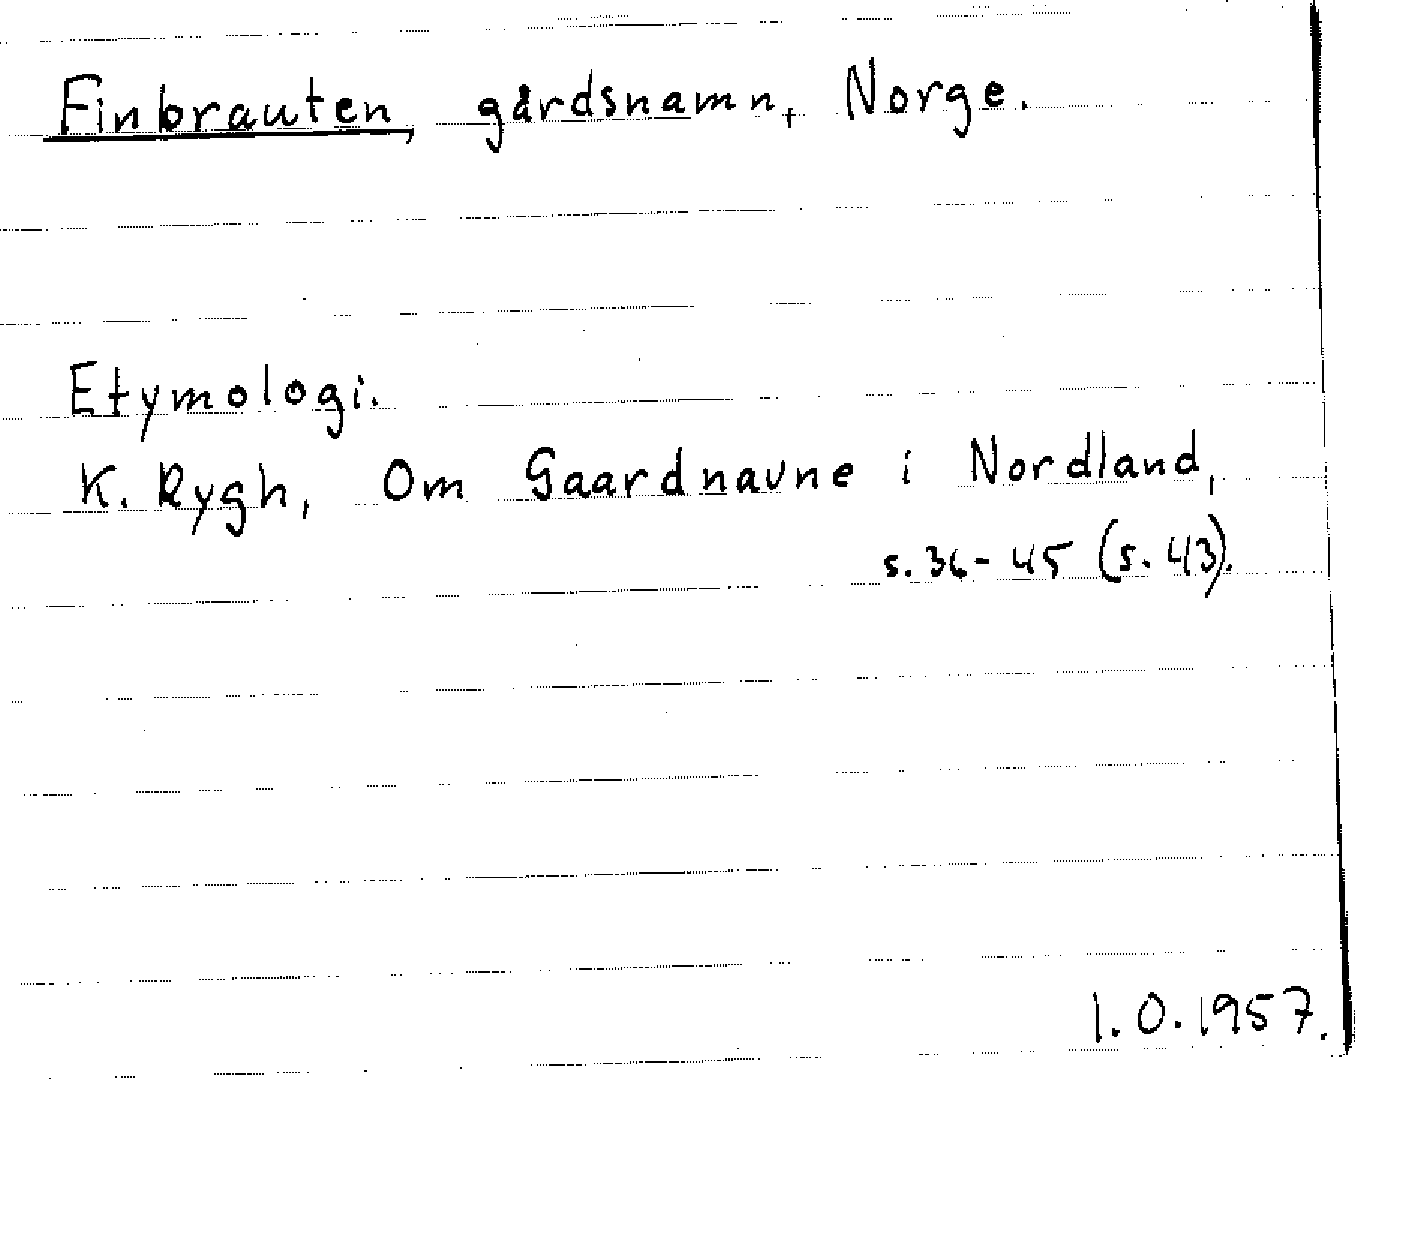 Finbrauten, gårdsnamn, Norge.
Etymologi.
K. Rygh, Om Gaardnavne i Nordland,
s. 36-45 (s. 43).
1.0.1957.